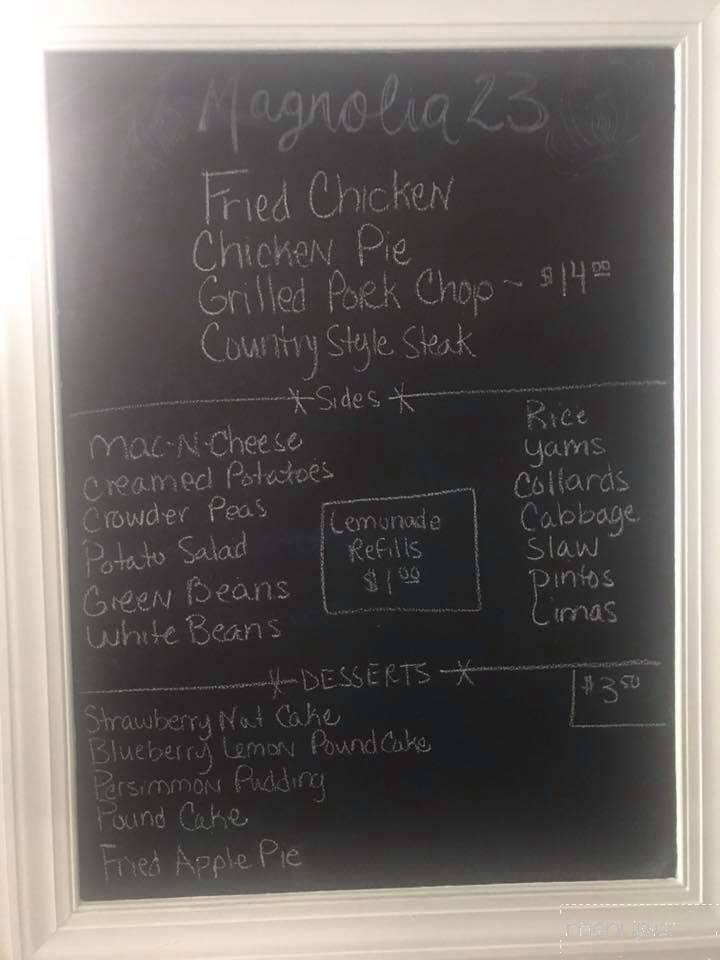 Magnolia 23
Fried Chicken
Chicken Pie
Grilled Pork Chop - $14.00
Country Style Steak
Sides
Mac-N-Cheese
Creamed Potatoes
Crowder Peas
Potato Salad
Green Beans
White Beans
Lemonade
Refills
$1.00
Rice
Yams
Collards
Cabbage
Slaw
Pintos
Limas
DESSERTS
$3.50
Strawberry Nut Cake
Blueberry Lemon Pound Cake
Persimmon Pudding
Pound Cake
Fried Apple Pie